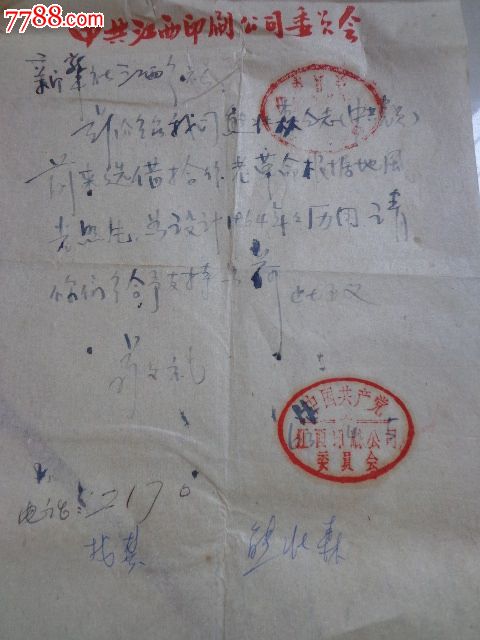 7788.com
中共江西印刷公司委员会
新华社江西分社
兹介绍我司熊兆森同志(中共党员)
前来选借拾你老革命根据地风
光照片,为设计1964年之历用,请
你们给予支持为荷 此致
敬礼
中国共产党
江西印刷公司
委员会
电话:2170
找其 熊兆森